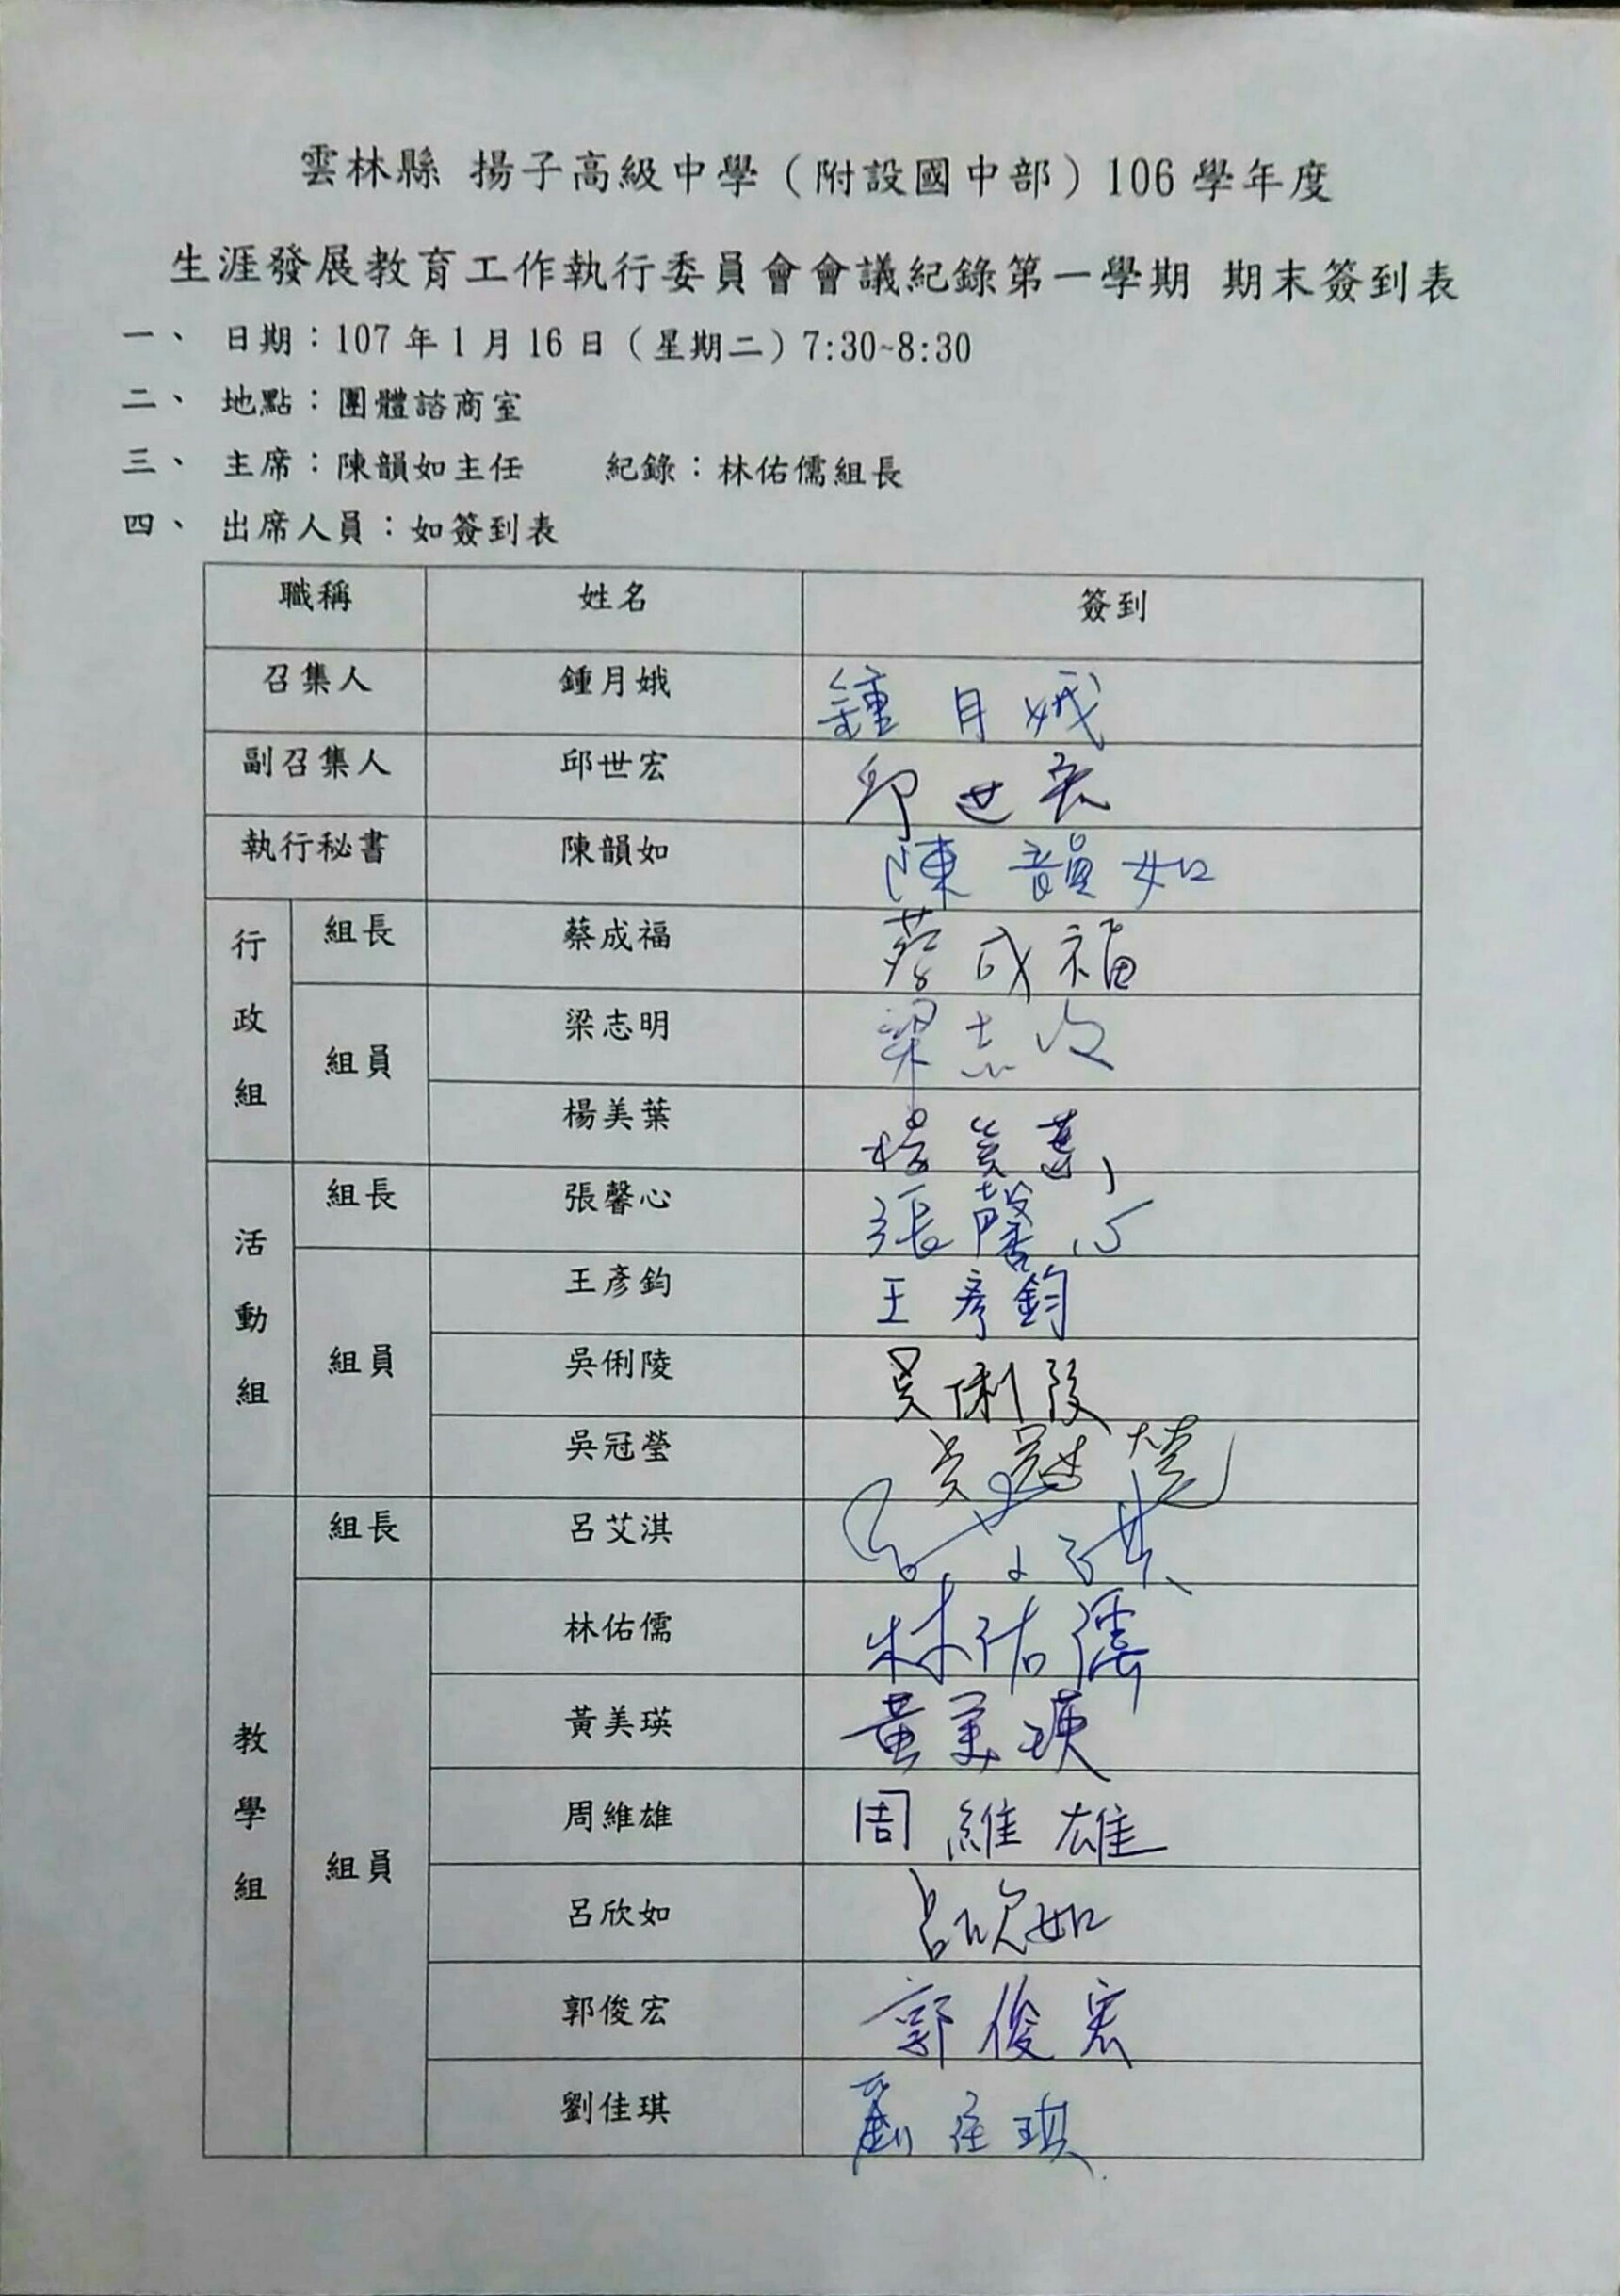 雲林縣 揚子高級中學（附設國中部）106 學年度
生涯發展教育工作執行委員會會議紀錄第一學期 期末簽到表
一、 日期：107 年 1 月 16 日（星期二）7:30~8:30
二、 地點：團體諮商室
三、 主席：陳韻如主任 紀錄：林佑儒組長
四、 出席人員：如簽到表
職稱 姓名 簽到
召集人 鍾月娥 鍾月娥
副召集人 邱世宏 邱世宏
執行秘書 陳韻如 陳韻如
行政組 組長 蔡成福 蔡成福
組員 梁志明 梁志明
楊美葉 楊美葉
活動組 組長 張馨心 張馨心
組員 王彥鈞 王彥鈞
吳俐陵 吳俐陵
吳冠瑩 吳冠瑩
教學組 組長 呂艾淇 呂艾淇
組員 林佑儒 林佑儒
黃美瑛 黃美瑛
周維雄 周維雄
呂欣如 呂欣如
郭俊宏 郭俊宏
劉佳琪 劉佳琪